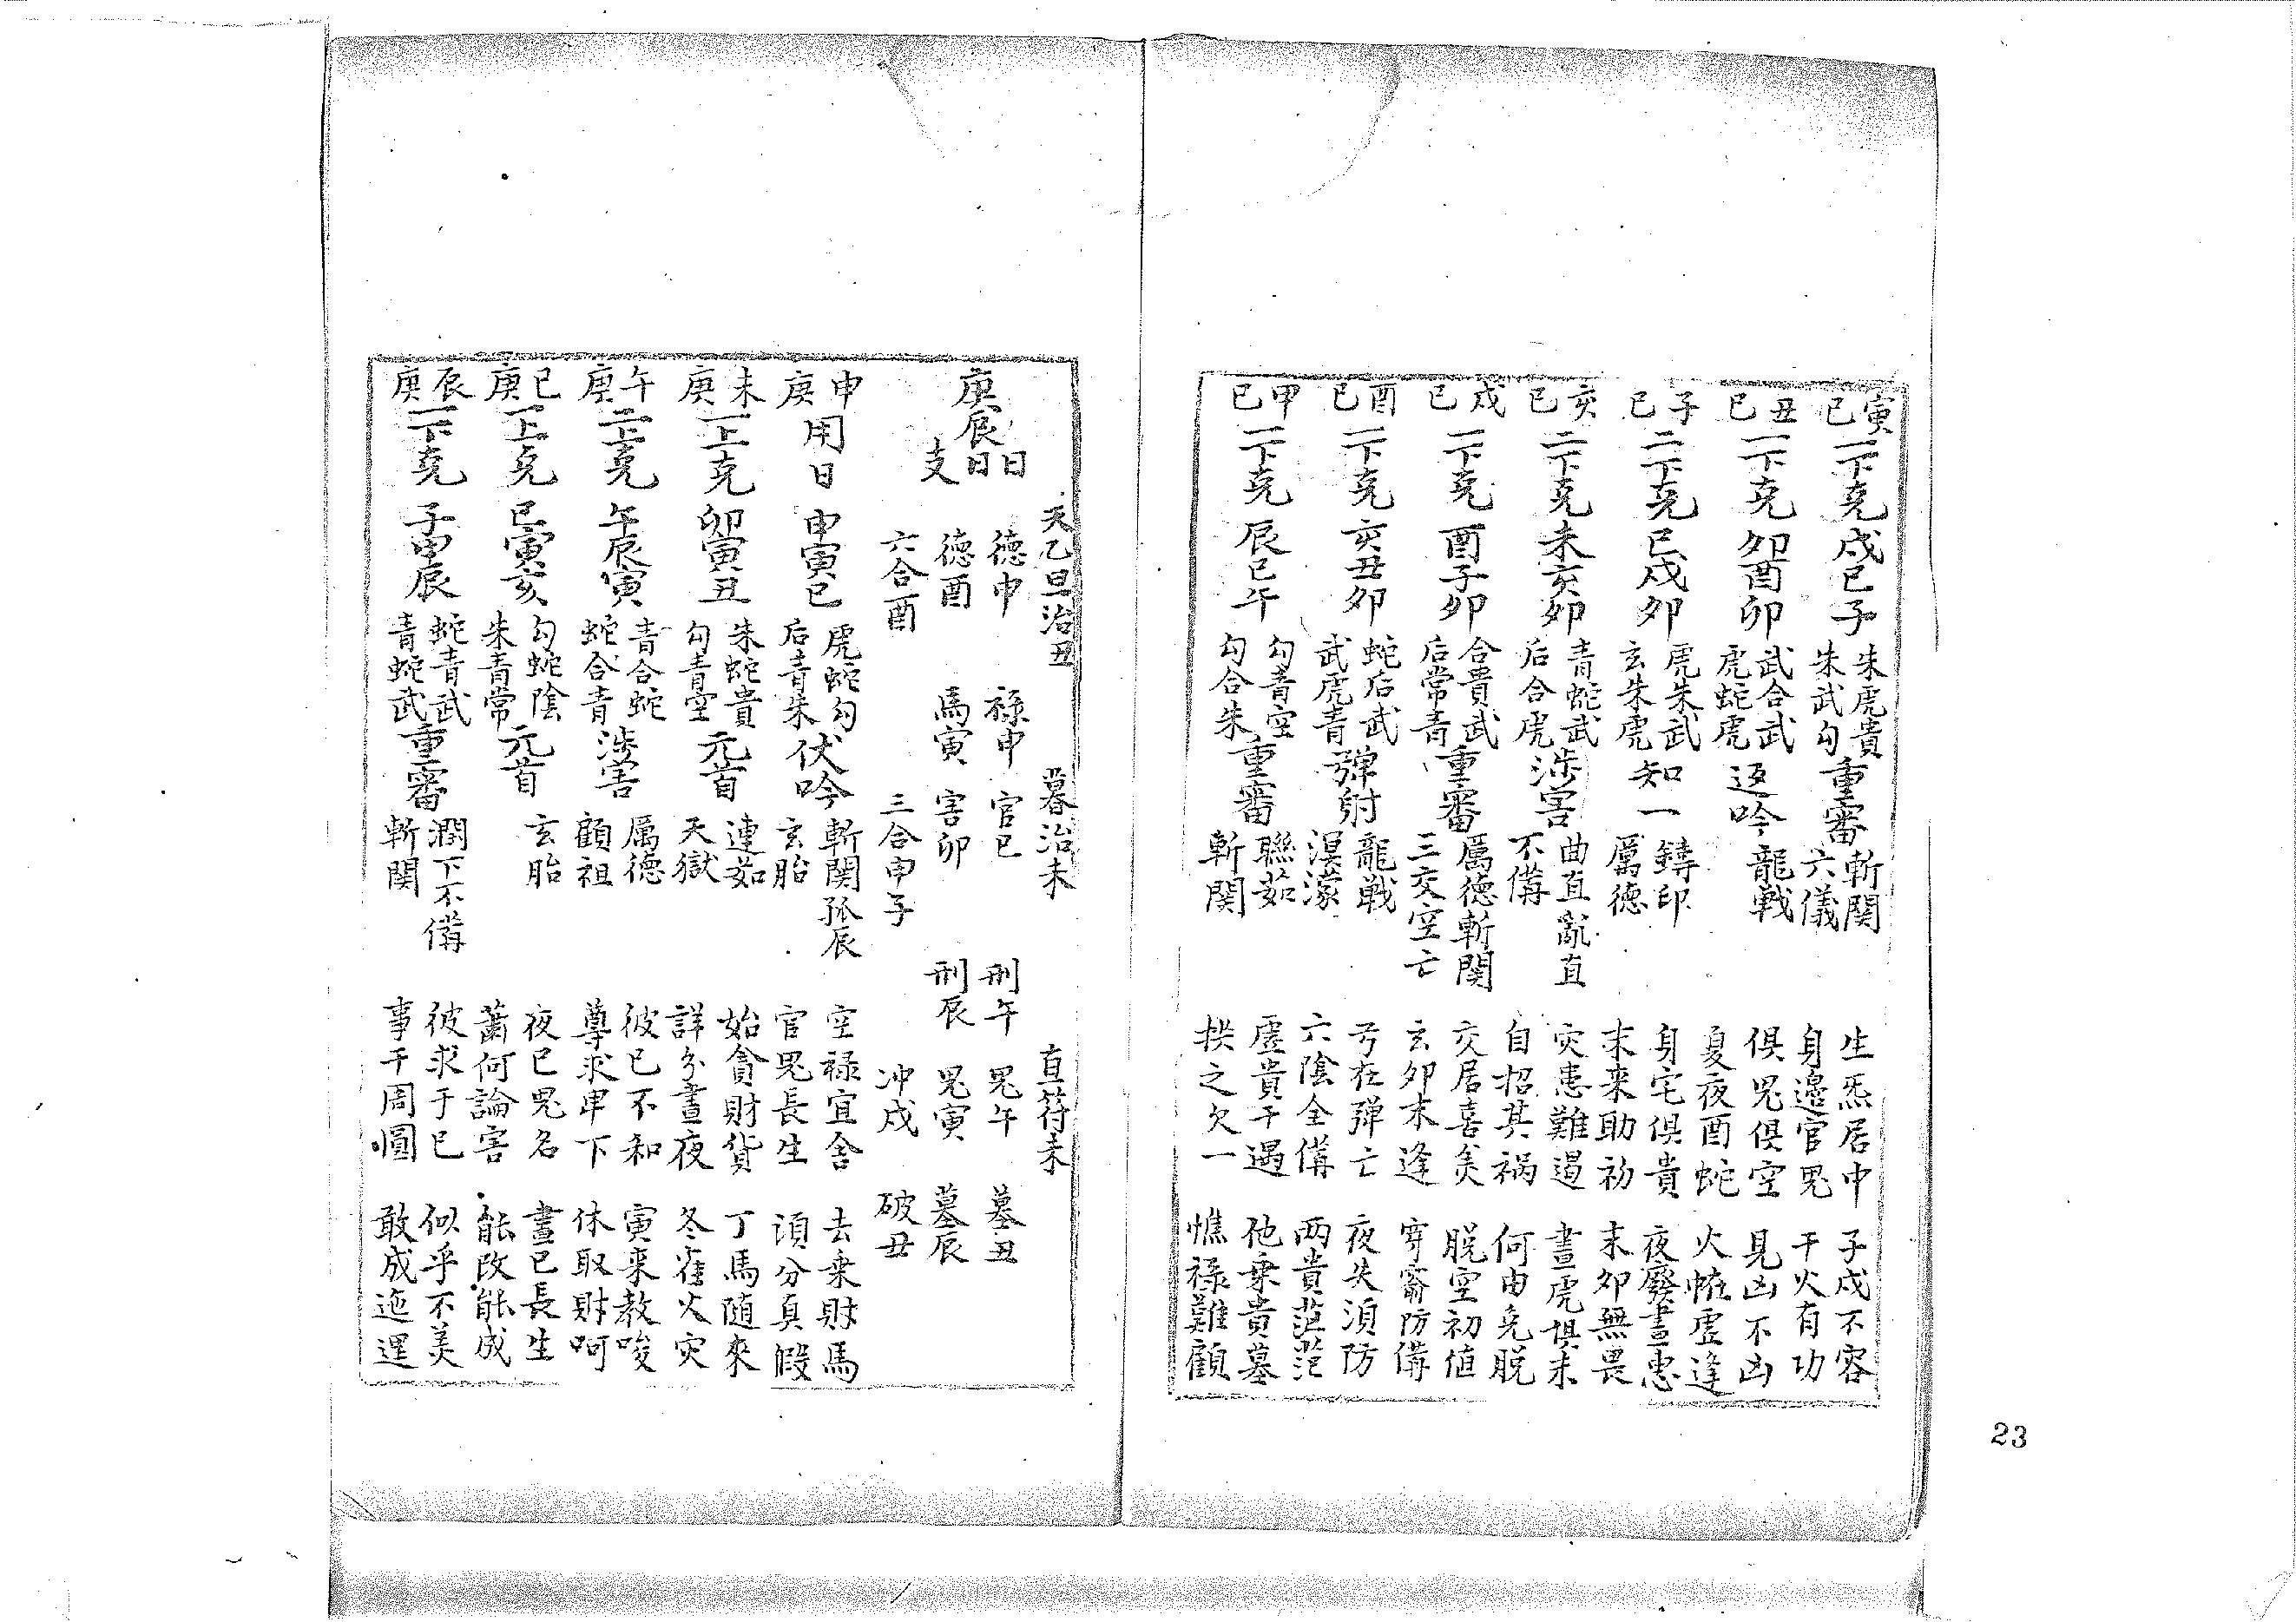 寅己 一下克 戌巳子 朱虎貴 朱武勾 重審 斬関 六儀 生炁居中 身邊官鬼 子戌不容 干火有功
丑己 一下克 卯酉卯 武合武 虎蛇虎 返吟 龍戰 俱鬼俱空 夏夜酉蛇 見凶不凶 火㡢虛逢
子己 二下克 巳戌卯 虎朱武 玄朱虎 知一 鑄印 厲德 身宅俱貴 末來助初 夜廢晝患 末卯無畏
亥己 二下克 未亥卯 青蛇武 后合虎 涉害 曲直亂直 不備 灾患難遏 自招其禍 晝虎俱未 何由免脱
戌己 一下克 酉子卯 合貴武 后常青 重審 厲德斬関 三交空亡 交居喜矣 玄卯末逢 脱空初值 穿窬防備
酉己 一下克 亥丑卯 蛇后武 武虎青 彈射 龍戰 溟濛 丂在彈亡 六陰全備 夜失須防 两貴茫茫
申己 一下克 辰巳午 勾青空 勾合朱 重審 聯茹 斬関 虛貴干遇 拱之欠一 他乘貴墓 憔禄難顧
23
天乙旦治丑 暮治未 直符未
庚辰日
日 德申 禄申 官巳 刑午 鬼午 墓丑
支 德酉 馬寅 害卯 刑辰 鬼寅 墓辰
六合酉 三合申子 冲戌 破丑
申庚 用日 申寅巳 虎蛇勾 后青朱 伏吟 斬関孤辰 玄胎 空禄宜舍 官鬼長生 去乗財馬 須分真假
未庚 一上克 卯寅丑 朱蛇貴 勾青空 元首 連茹 天獄 始貪財貨 詳分晝夜 丁馬随來 冬雀火灾
午庚 二上克 午辰寅 青合蛇 蛇合青 涉害 厲德 顧祖 彼己不和 尊求卑下 寅来教唆 休取財呵
巳庚 一上克 巳寅亥 勾蛇陰 朱青常 元首 玄胎 夜巳鬼名 蕭何論害 晝巳長生 能改能成
辰庚 一下克 子申辰 蛇青武 青蛇武 重審 潤下不備 斬関 彼求于己 事干周圓 似乎不美 敢成迤逞